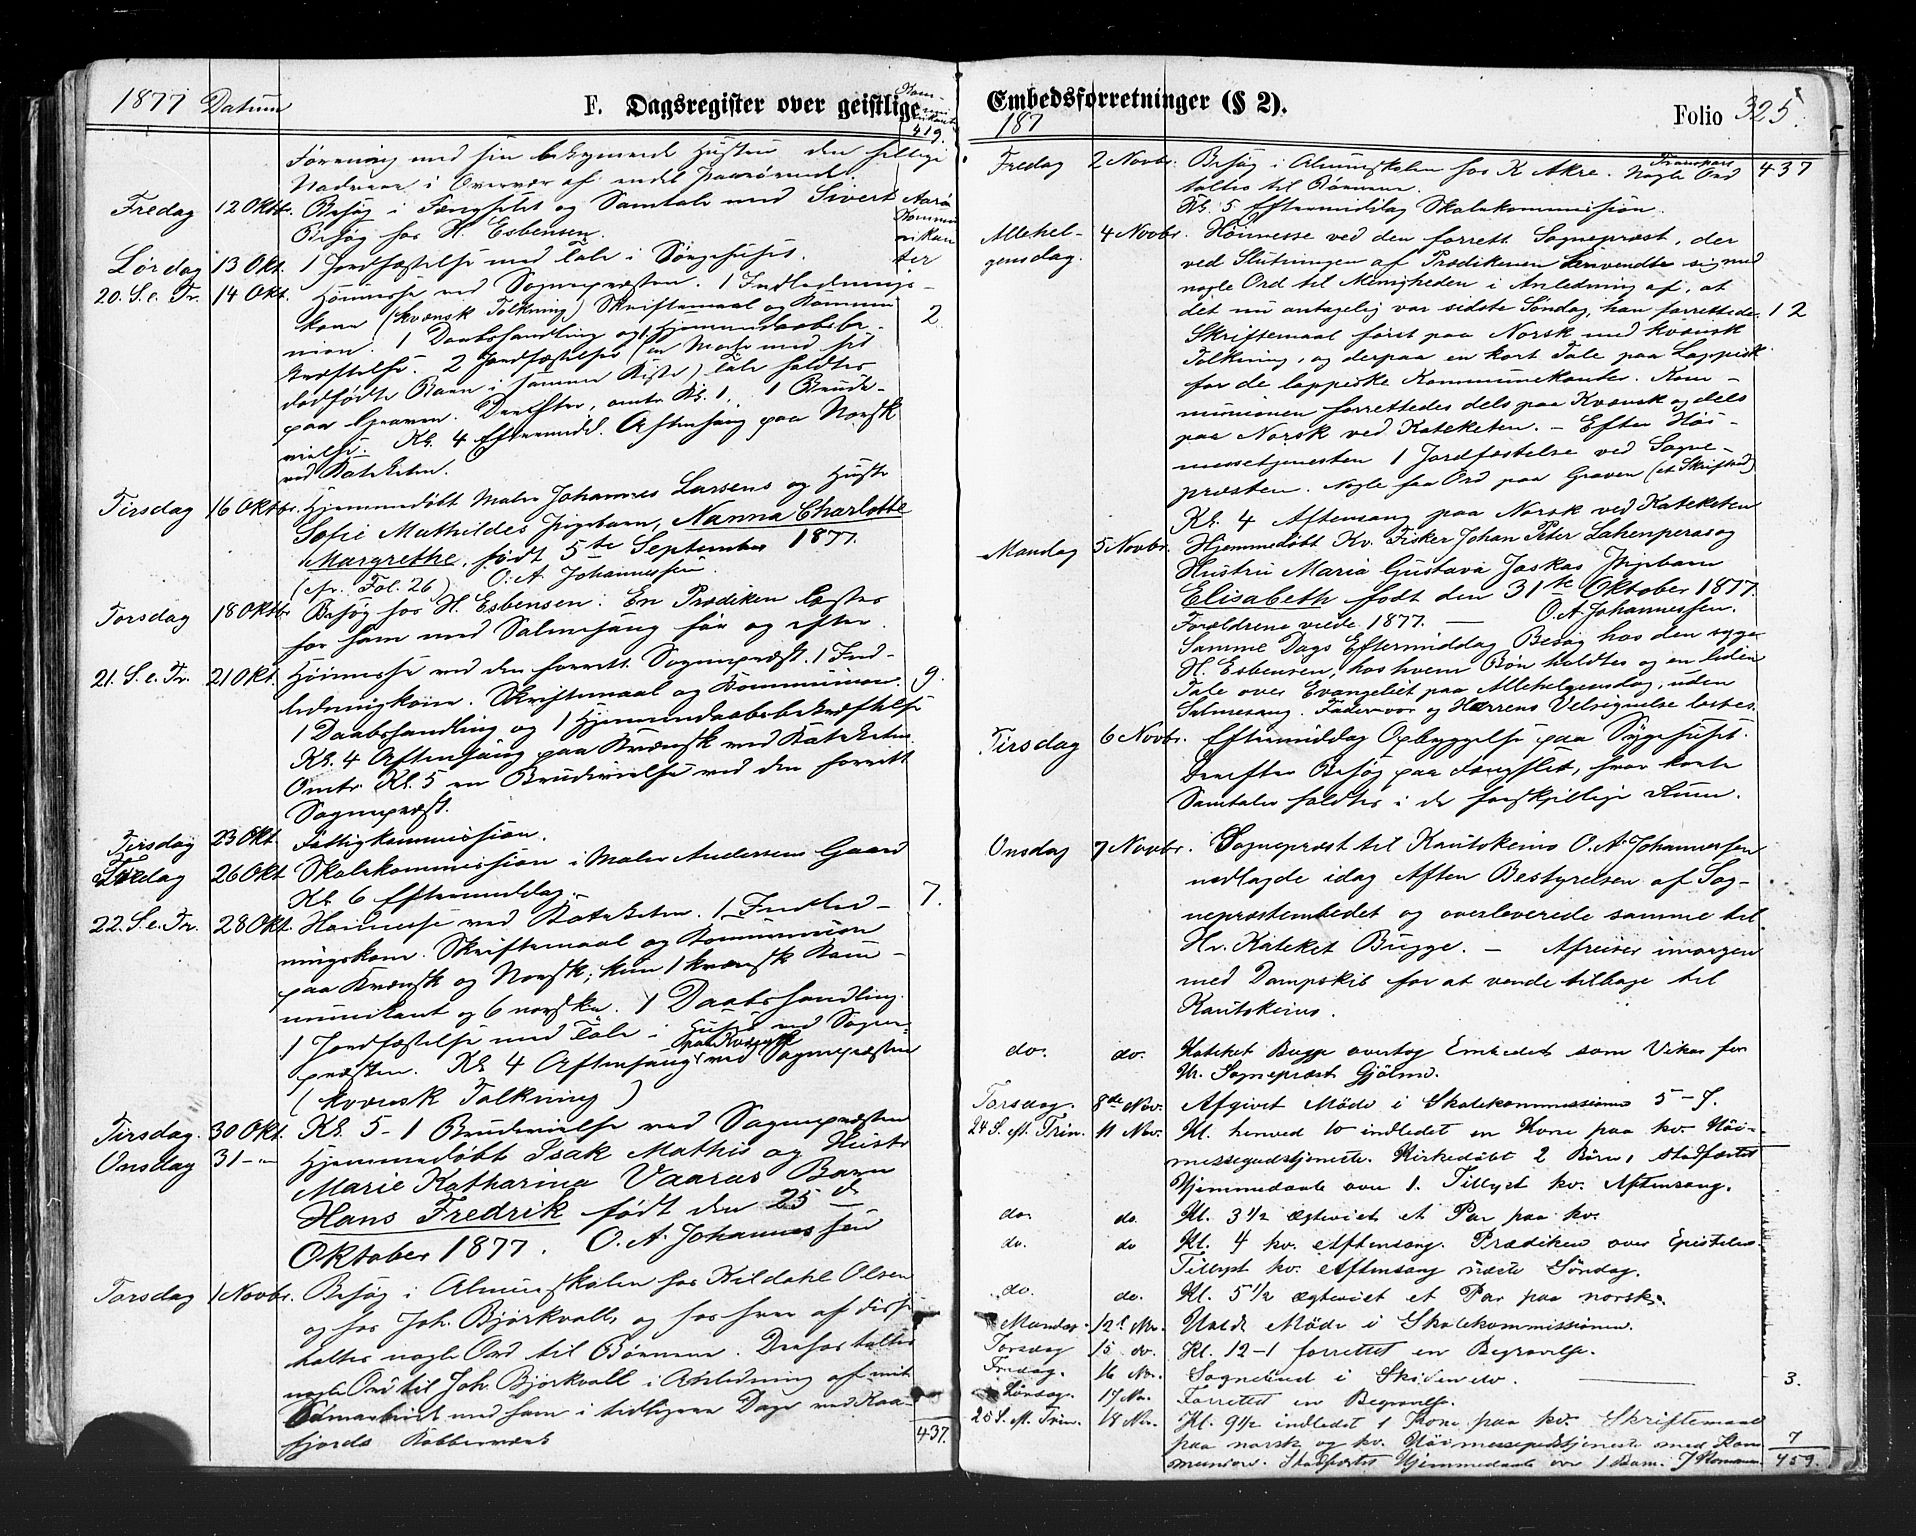 1877 Datum
F. Dagsregister over geistlige
Kom-
munikanter
419.
Forening med sin bekymrede Hustru den hellige
Nadvere, i Overvær af endel paarørende.
Fredag 12 Oktbr. Besøg i Fængslet og Samtale med Sivert Aarø
Besøg hos H. Esbensen.
Kommu
nikan
ter
Lørdag 13 Okt. 1 Jordfæstelse med Tale i Sørgehuset.
20. S. e. Tr. 14 Okt. Høimesse ved Sognepræsten. 1 Indlednings-
kone (kvænsk Tolkning) Skriftemaal og Kommu 2.
nion. 1 Daabshandling og 1 Hjemmedaabsbe-
kræftelse. 2 Jordfæstelser (en Moder med sit
dødfødte Barn i samme Kiste) Tale holdtes
paa Graven. Derefter, omtr. Kl. 1, 1 Brude-
vielse. Kl. 4 Eftermidd. Aftensang paa Norsk
ved Kateketen.
Tirsdag 16 Oktbr. Hjemmedøbt Maler Johannes Larsens og Hustr
Sofie Mathildes Pigebarn, Nanna Charlotte
Margrethe, født 5te September 1877.
(cfr. Fol. 26) O. A. Johannessen.
Torsdag 18 Oktbr. Besøg hos H. Esbensen. En Prædiken læstes
for ham med Salmesang før og efter.
21. S. e. Tr. 21 Okt. Høimesse ved den forrett. Sognepræst. 1 Ind-
ledningskone. Skriftemaal og Kommunion. 9.
1 Daabshandling og 1 Hjemmedaabsbekræftelse
Kl. 4 Aftensang paa Kvænsk ved Kateketen.
Omtr. Kl. 5 en Brudevielse ved den forrett
Sognepræst.
Tirsdag 23 Okt. Fattigkommission.
Fredag 26 Okt Skolekommission i Maler Andersens Gaard
Kl. 6 Eftermiddag.
22. S. e. Tr. 28 Okt. Høimesse ved Kateketen. 1 Indled- 7.
ningskone. Skriftemaal og Kommunion
paa Kvænsk og Norsk; kun 1 kvænsk Kom-
munikant og 6 norske. 1 Daabshandling.
1 Jordfæstelse med Tale i Huset ved Sogne-
præsten. Kl. 4 Aftensang paa Kvænsk ved Sognepræsten
(kvænsk Tolkning)
Tirsdag. 30 Okt. Kl. 5 - 1 Brudevielse ved Sognepræsten
Onsdag 31 -"- Hjemmedøbt Isak Mathis og Hustr
Marie Katharina Vaaras Barn
Hans Fredrik født den 25 d
Oktober 1877. O. A. Johannessen
Torsdag 1 Novbr. Besøg i Almueskolen hos Kildahl Olsen
og hos Joh. Bjørkvall, og hos hver af disse
taltes nogle Ord til Børnene. Derhos taltes
nogle Ord til Joh. Bjørkvall i Anledning af mit
Samarbeid med ham i tidligere Dage ved Kaa-
fjords Kobberværk
437.
Embedsforretninger (§ 2).
187
Folio 325.
Transport
Fredag 2 Novbr. Besøg i Almueskolen hos K Akre. Nogle Ord 437
taltes til Børnene.
Kl. 5 Eftermiddag Skolekommission.
Allehel- 4 Novbr. Høimesse ved den forrett Sognepræst, der
gensdag. ved Slutningen af Prædikenen henvendte sig med
nogle Ord til Menigheden i Anledning af, at
det nu antagelig var sidste Søndag, han forrettede. 12
Skriftemaal først paa Norsk med kvænsk
Tolkning, og derpaa en kort Tale paa Lappisk
for de lappiske Kommunekanter. Kom-
munionen forrettedes dels paa Kvænsk og dels
paa Norsk ved Kateketen. - Efter Høi-
messetjenesten 1 Jordfæstelse ved Sogne-
præsten. Nogle faa Ord paa Graven (et Skriftsted)
Kl. 4 Aftensang paa Norsk ved Kateketen
Mandag 5 Novbr. Hjemmedøbt Kv. Fisker Johan Peter Lahenperas og
Hustru Maria Gustava Jaskas Pigebarn
Elisabeth født den 31te Oktober 1877.
Forældrene viede 1877. - O. A. Johannessen.
Samme Dags Eftermiddag Besøg hos den syge
H. Esbensen, hos hvem Bøn holdtes og en liden
Tale over Evangeliet paa Allehelgensdag, uden
Salmesang. Fadervor og Herrens Velsignelse læstes.
Tirsdag 6 Novbr. Eftermiddag Opbyggelse paa Sygehuset.
Derefter Besøg paa Fængslet, hvor korte
Samtaler holdtes i de forskjellige Rum.
Onsdag 7 Novbr. Sognepræst til Kautokeino O. A. Johannessen
nedlagde idag Aften Bestyrelsen af Sog-
nepræstembedet og overleverede samme til
Hr. Kateket Bugge. - Afreiser imorgen
med Dampskib for at vende tilbage til
Kautokeino.
do. do. Kateket Bugge overtog Embedet som Vikar for
Hr. Sognepræst Gjølme.
Torsdag. 8de Nov. Afgivet Møde i Skolekommissionen 5-7.
24 S. e. Trin. 11 Nov. Kl. henved 10 indledet en Kone paa kv. Høi-
messegudstjeneste. Kirkedøbt 2 Børn, stadfæstet
Hjemmedaab over 1. Tillyst kv. Aftensang.
do. do. Kl. 3 1/2 ægteviet et Par paa kv.
do. do Kl. 4 kv. Aftensang. Prædiken over Epistelen.
Tillyst kv. Aftensang næste Søndag.
do. do. Kl. 5 1/2 ægteviet et Par paa norsk.
Mandag. 12te Nov. Holdt Møde i Skolekommissionen.
Torsdag 15 do. Kl. 12-1 forrettet en Begravelse.
Fredag. 16 Nov. Sognebud i Skidendv. 3.
Lørdag. 17 Nov. Forrettet en Begravelse.
25 S. e. Trin. 18 Nov. Kl. 9 1/2 indledet 1 Kone paa kv. Skriftemaal
paa norsk og kv. Høimessegudstjeneste med Kom 7
munion. Stadfæstet Hjemmedaab over 1 Barn. 7 Kommun. 459.